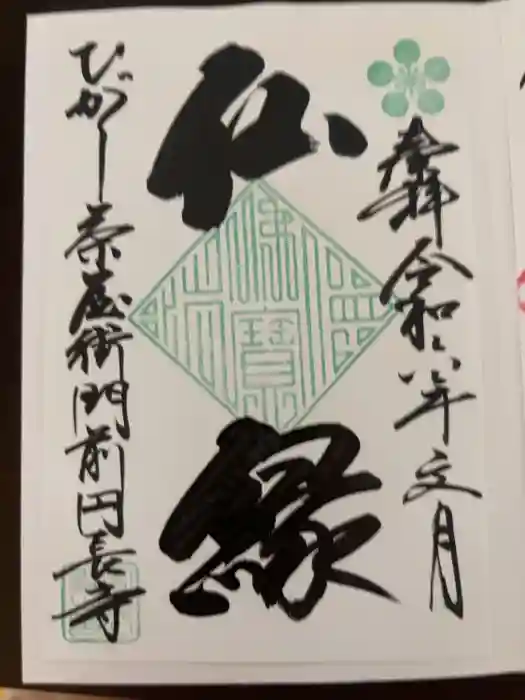 奉拝 令和六年文月
仏縁
ひがし茶屋街門前円長寺